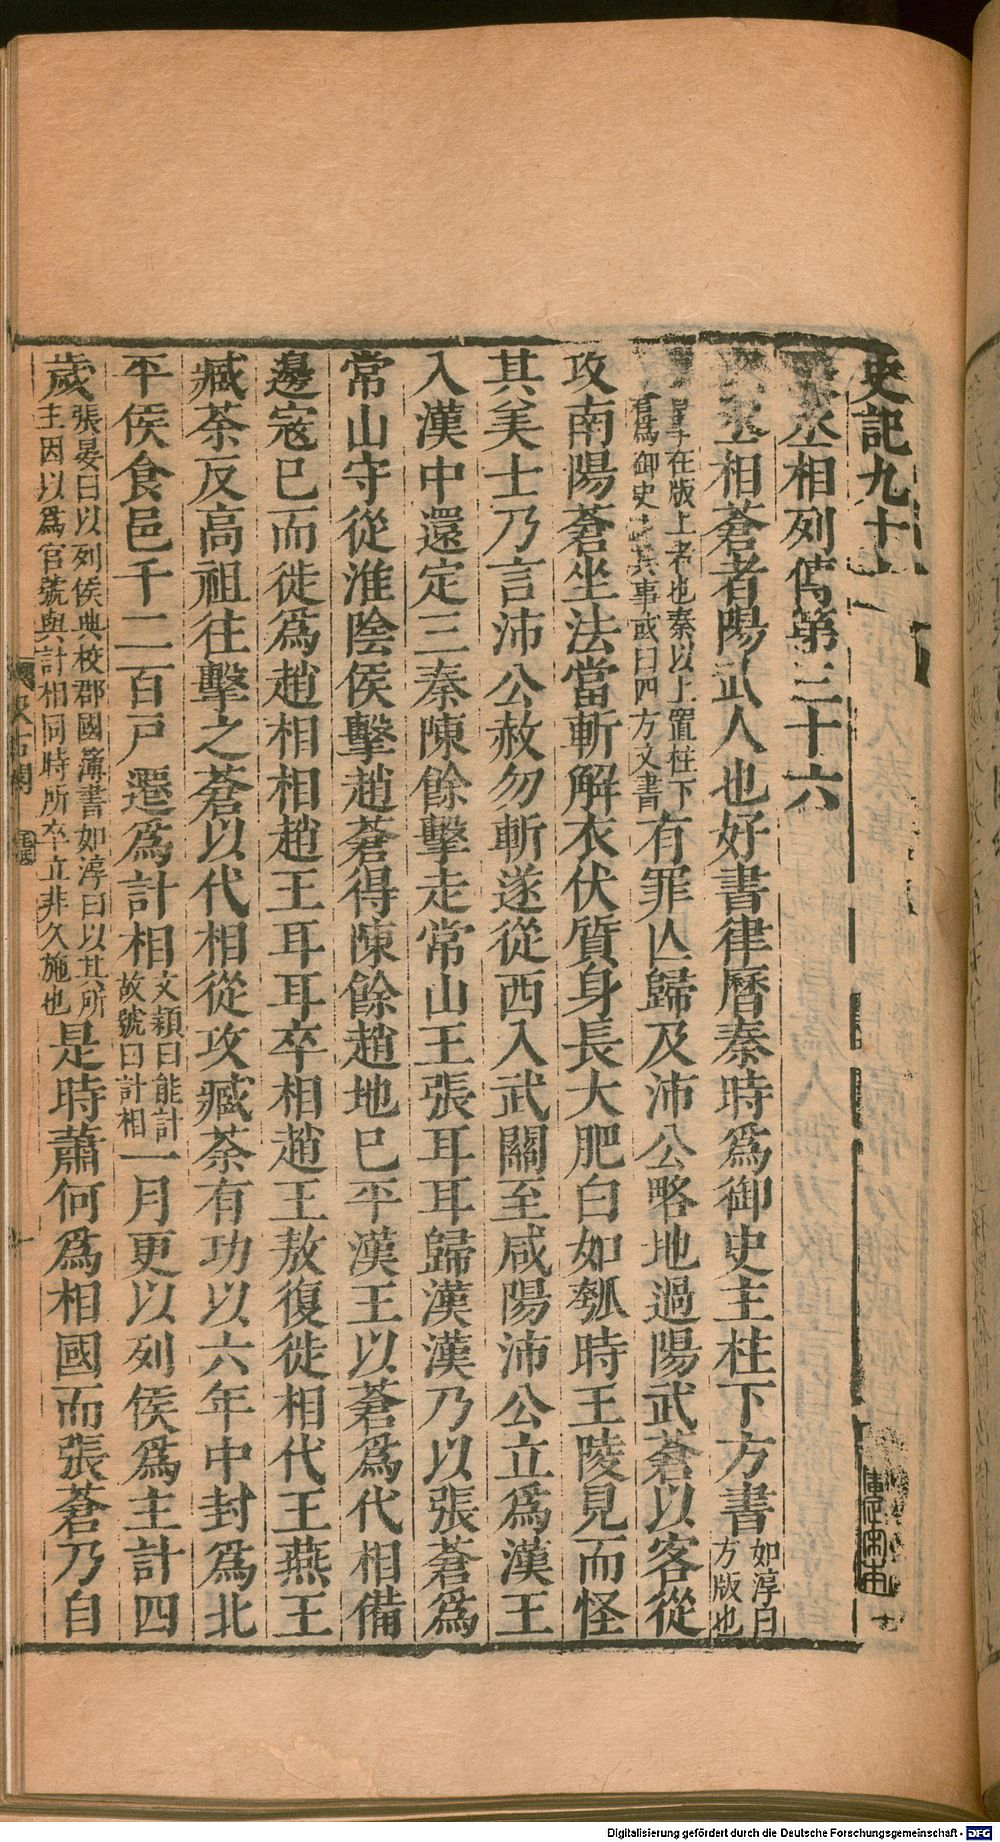 史記九十
丞相列傳第三十六
丞相蒼者陽武人也好書律曆秦時爲御史主柱下方書如淳曰方版也
事在版上者也秦以上置柱下爲御史其事或曰四方文書有罪亡歸及沛公略地過陽武蒼以客從
攻南陽蒼坐法當斬解衣伏質身長大肥白如瓠時王陵見而怪
其美士乃言沛公赦勿斬遂從西入武關至咸陽沛公立爲漢王
入漢中還定三秦陳餘擊走常山王張耳耳歸漢漢乃以張蒼爲
常山守從淮陰侯擊趙蒼得陳餘趙地已平漢王以蒼爲代相備
邊寇已而徙爲趙相相趙王耳耳卒相趙王敖復徙相代王燕王
臧荼反高祖往擊之蒼以代相從攻臧荼有功以六年中封爲北
平侯食邑千二百戸遷爲計相文穎曰能計故號曰計相一月更以列侯爲主計四
歲張晏曰以列侯典校郡國簿書如淳曰以其所主因以爲官號與計相同時所卒立非久施也是時蕭何爲相國而張蒼乃自
汲古閣
Digitalisierung gefördert durch die Deutsche Forschungsgemeinschaft - DFG